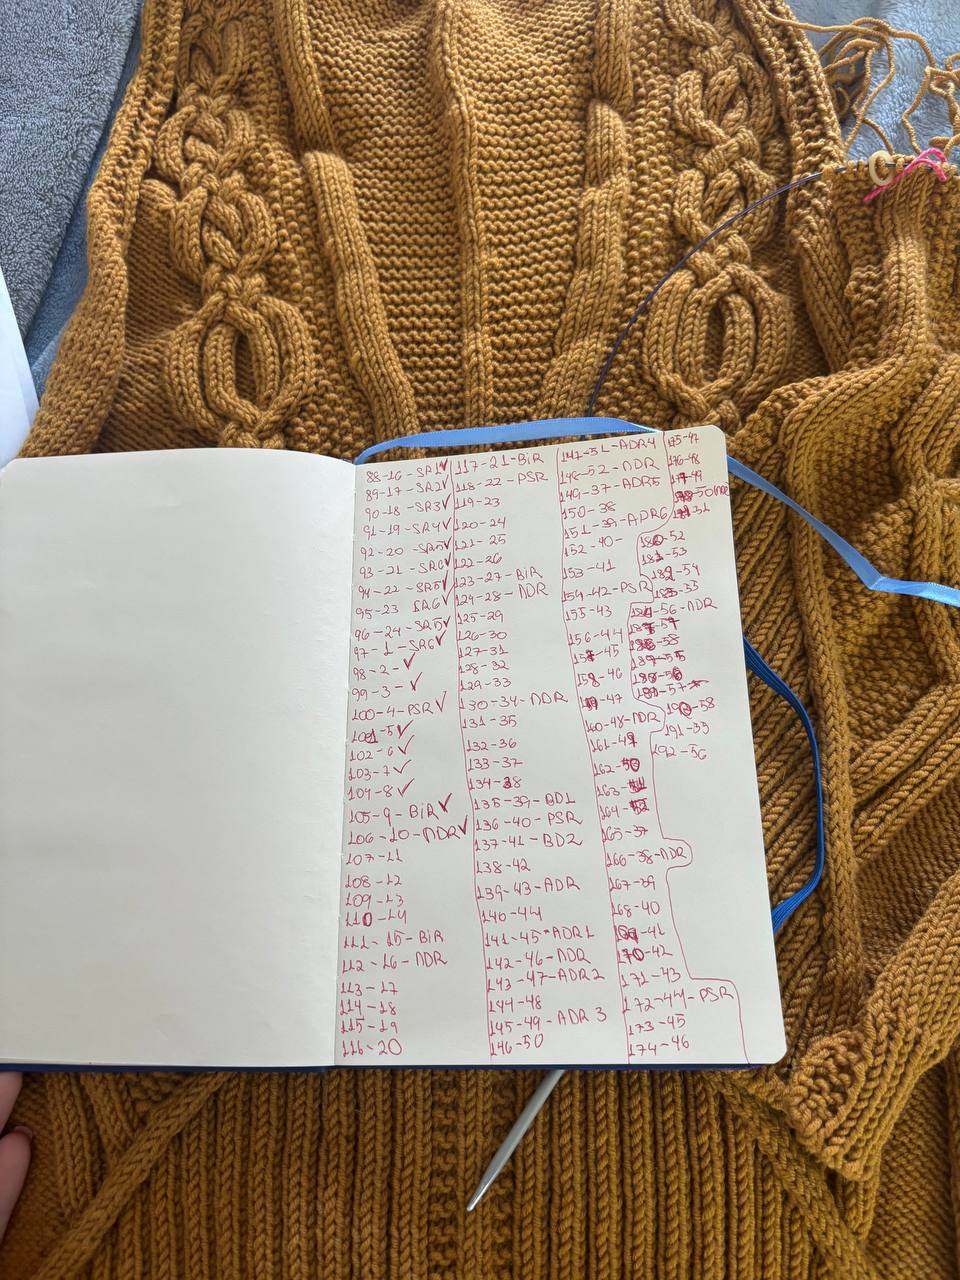 88-16-SR1✓
89-17-SR2✓
90-18-SR3✓
91-19-SR4✓
92-20-SR5✓
93-21-SR6✓
94-22-SR5✓
95-23 SR6✓
96-24-SR5✓
97-1-SR6✓
98-2-✓
99-3-✓
100-4-PSR✓
101-5✓
102-6✓
103-7✓
104-8✓
105-9-BiR✓
106-10-NDR✓
107-11
108-12
109-13
110-14
111-15-BiR
112-16-NDR
113-17
114-18
115-19
116-20
117-21-BiR
118-22-PSR
119-23
120-24
121-25
122-26
123-27-BiR
124-28-NDR
125-29
126-30
127-31
128-32
129-33
130-34-NDR
131-35
132-36
133-37
134-38
135-39-BD1
136-40-PSR
137-41-BD2
138-42
139-43-ADR
140-44
141-45-ADR1
142-46-NDR
143-47-ADR2
144-48
145-49-ADR3
146-50
147-51-ADR4
148-52-NDR
149-37-ADR5
150-38
151-39-ADR6
152-40-
153-41
154-42-PSR
155-43
156-44
157-45
158-46
159-47
160-48-NDR
161-49
162-50
163-51
164-52
165-37
166-38-NDR
167-39
168-40
169-41
170-42
171-43
172-44-PSR
173-45
174-46
175-47
176-48
177-49
180-52
181-53
182-54
183-33
56-NDR
190-58
191-33
192-56